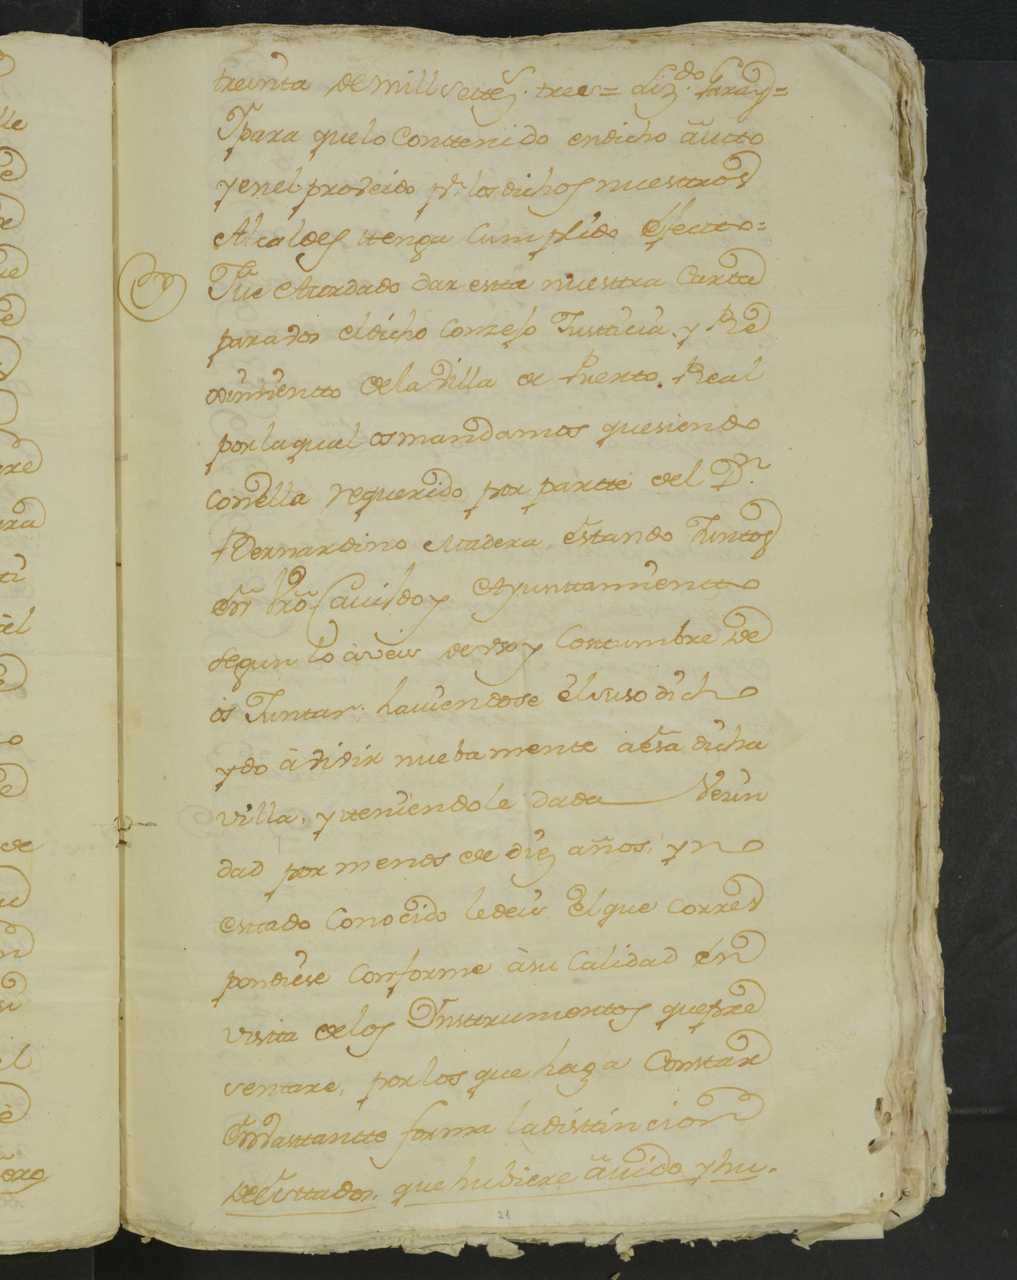 treinta de mill settes. tres= Liz.do
Ypara quelo Conttenido endicho auto
yenel proveido pr. losdichos nuestros
Alcaldes ttenga Cumplido efecto=
Fue Acordado dar esta nuestra Cartta
paravos eldicho Consejo Justicia, y Re
ximientto dela Villa de Puerto Real
porlaqual osmandamos quesiendo
Conella requerido por partte del Dn.
Bernardino Madera, estando Juntos
en bro. Cavildo y Ayunttamientto
segun lo aveis de vso y Costumbre de
os Juntar. haviendose elsusodicho
ydo à Vivir nuebamente àesa dicha
villa, y tteniendole dada Vecin
dad por menos de diez años, y no
esttado Conocido ledeis el que Corres
pondiese Conforme àsu Calidad en
vista delos Ynstrumentos quepre
sentare, por los que haga Constar
en vasttantte forma ladistincion
de esttados, que hubiere avido y hu-
21